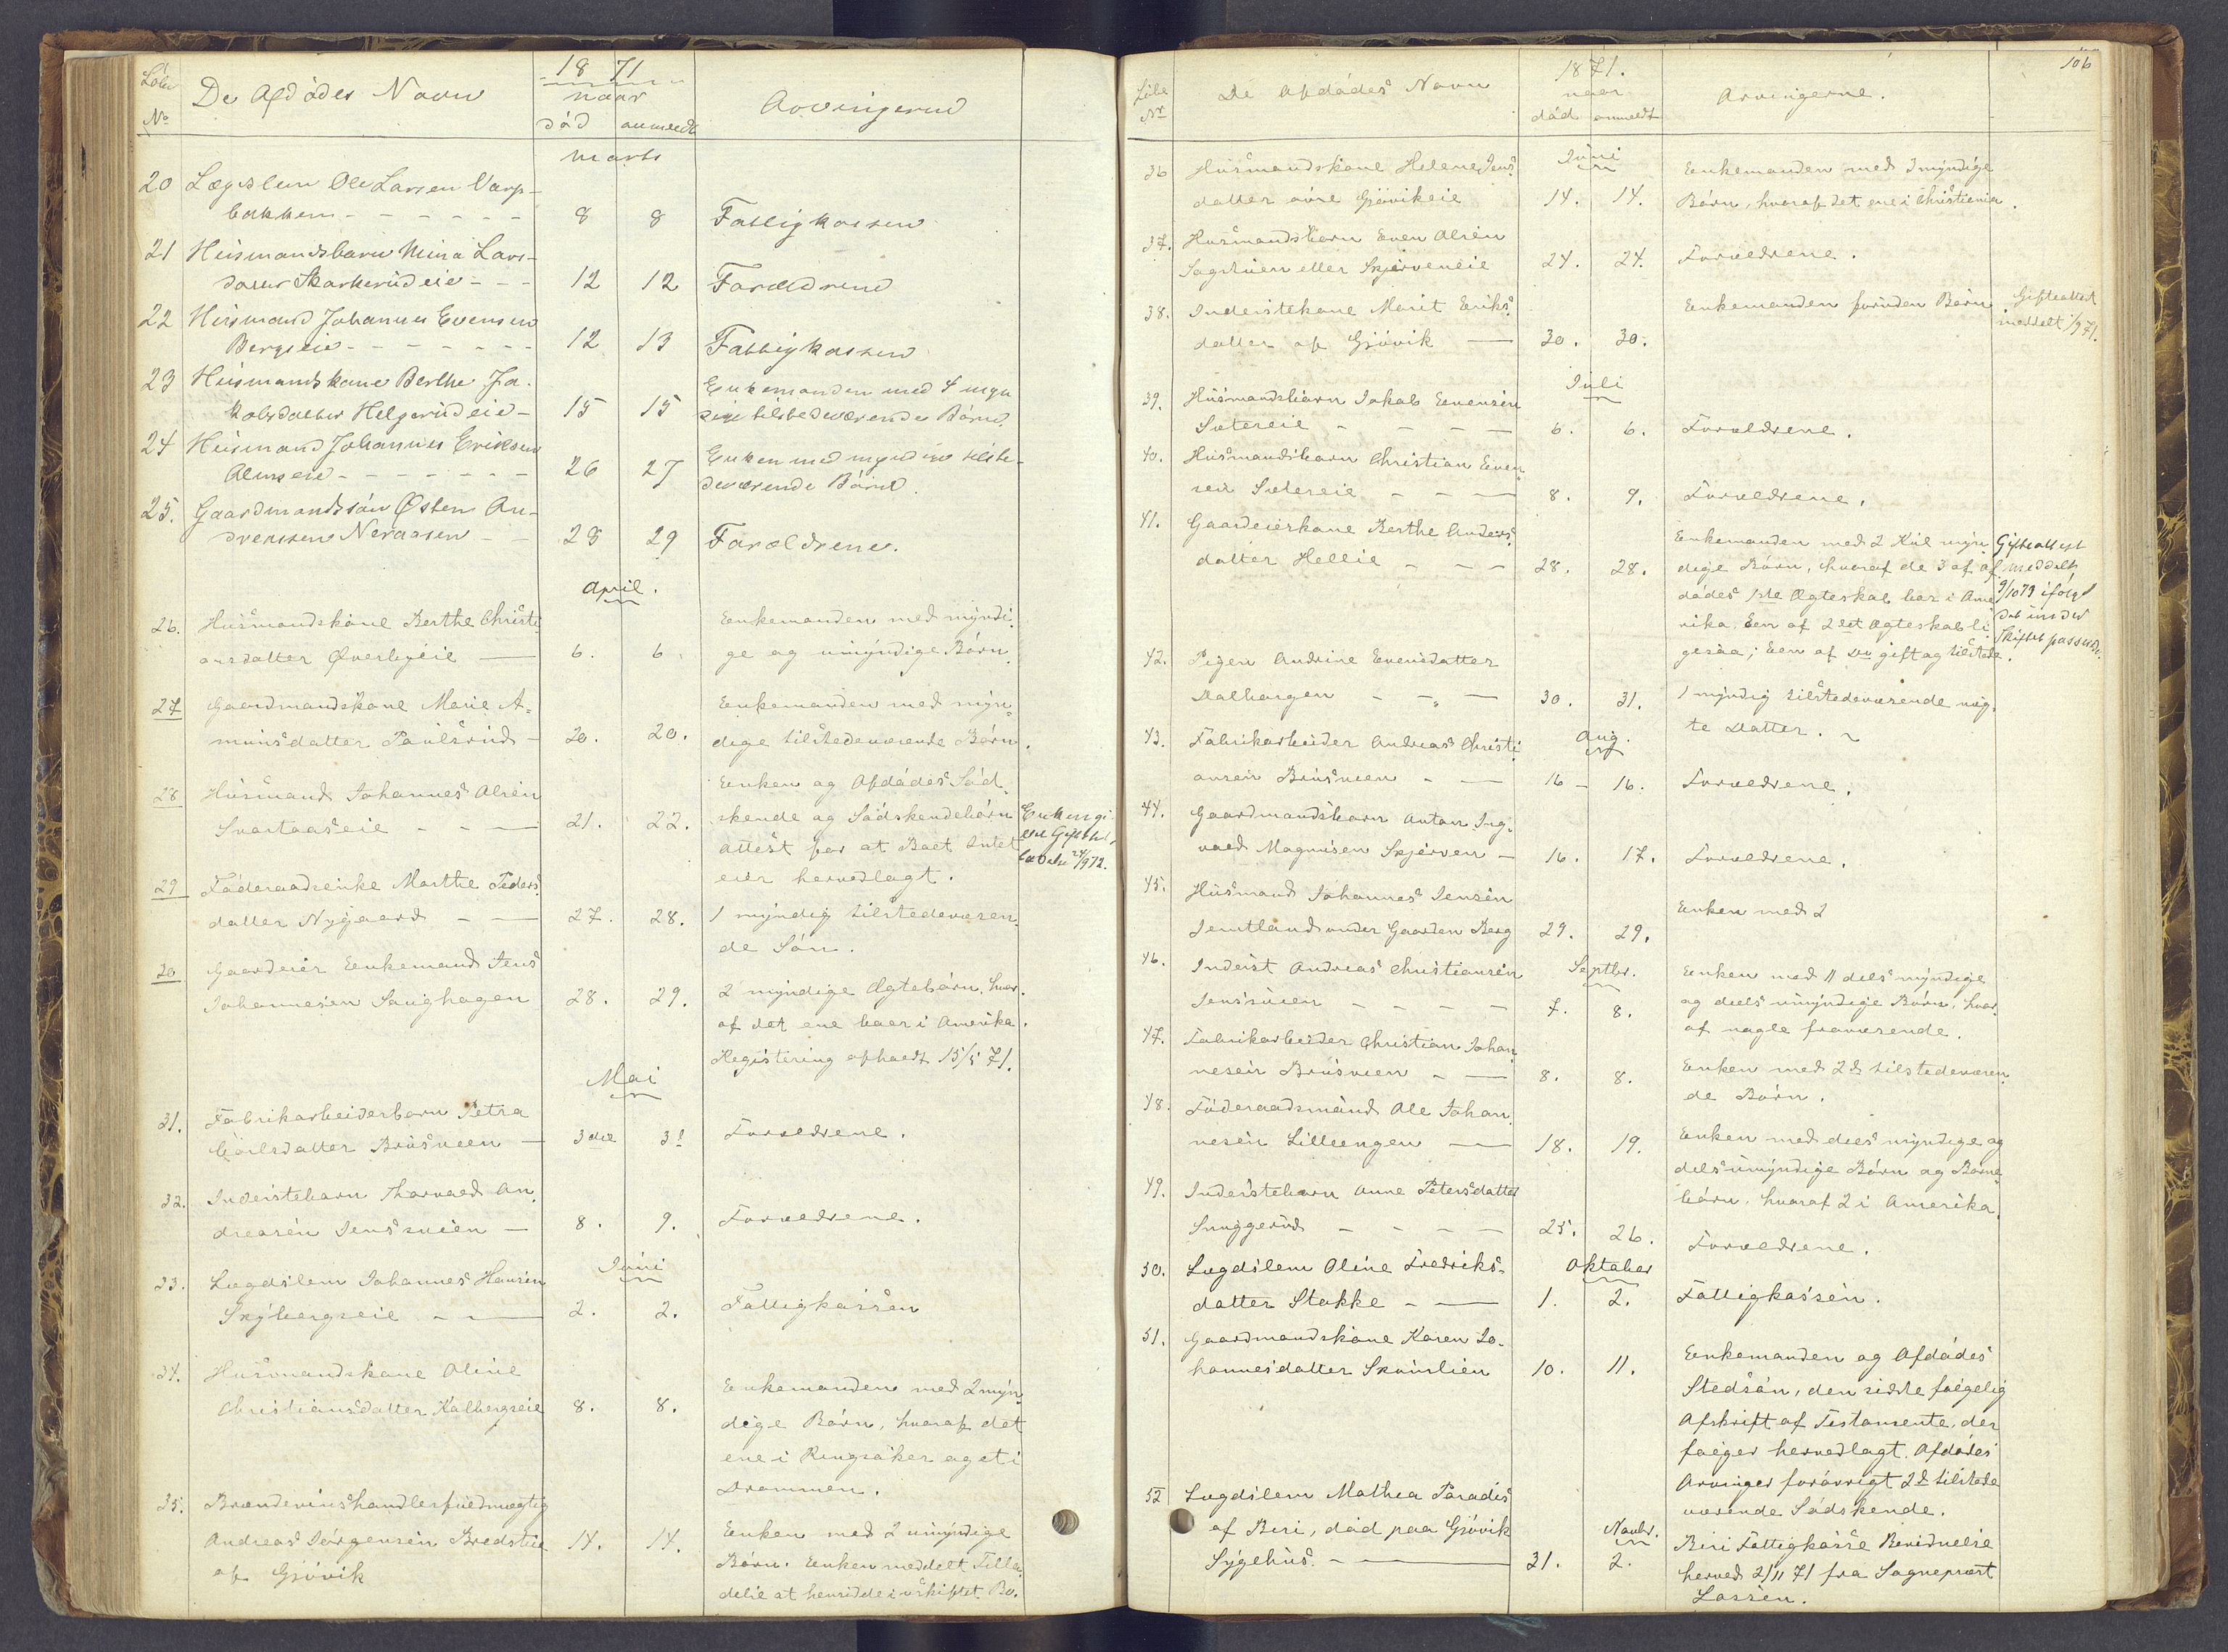 Löbe
No
De Afdödes Navn
1871
naar
död anmeldt
Arvingerne
Marts
20 Lægdslem Ole Larsen Varp-
bakken 8 8 Fattigkassen
21 Huusmandsbarn Mina Lars-
datter Skarkerudeie 12 12 Forældrene
22 Huusmand Johannes Evensen
Bergseie 12 13 Fattigkassen
23 Huusmandskone Berthe Ja-
kobsdatter Helgerudeie 15 15 Enkemanden med 4 myn
dige tilstedeværende Börn.
24 Huusmand Johannes Eriksen
Alm 26 27 Enken med myndige tilste-
deværende Börn.
25. Gaardmandssön Østen An-
dreassen Neraasen 28 29 Forældrene.
April.
26. Huusmandskone Berthe Christi-
ansdatter Øverbyeie 6. 6. Enkemanden med myndi-
ge og umyndige Börn.
27 Gaardmandskone Marie A-
munsdatter Paulsrud 20. 20. Enkemanden med myn-
dige tilstedeværende Börn.
28 Huusmand Johannes Olsen
Svartaaseie 21. 22. Enken og Afdödes Söd-
skende og Södskendebörn
attest for at Boet Intet
eier hervedlagt.
Enken gi
24/9 72.
29 Föderaadsenke Marthe Peders-
datter Nygaard 27. 28. 1 myndig tilstedeværen-
de Sön.
30 Gaardeier Eenkemand Jens
Johannesen Saughagen 28. 29. 2 myndige Ægtebörn, hvor-
af det ene boer i Amerika.
Registering afholdt 15/5 71.
Mai
31. Fabrikarbeiderbarn Petra
Carlsdatter Bruusveen 3die 3d Forældrene.
32. Inderstebarn Thorvald An-
dreasen Jenssveen 8. 9. Forældrene.
Juni
33. Lægdslem Johannes Hansen
Skybergseie 2. 2. Fattigkassen
34. Huusmandskone Oline
Christiansdatter Kalbergseie 8. 8. Enkemanden med 2 myn-
dige Börn, hvoraf det
ene i Ringsaker og et i
Drammen.
35. Brændeviinshandlerfuldmægtig
Andreas Jörgensen Bredstue
af Gjövik 14. 14. Enken med 2 umyndige
Börn. Enken meddelt Tilla-
delse at hensidde i uskiftet Bo.
106
Löbe
No
De Afdödes Navn
1871.
naar
död anmeldt
Arvingerne.
Juni
36 Huusmandskone Helene Jens-
datter övre Gjövikeie 14. 14. Eenkemanden med 3 myndige
Börn, hvoraf det ene i Christiania.
37. Huusmandsbarn Even Olsen
Sagstuen eller Skjerveneie 24. 24. Forældrene.
38. Inderstekone Marit Eriks-
datter af Gjövik 30. 30. Eenkemanden foruden Börn
Gifteattest
meddelt 1/9 71.
Juli
39. Huusmandsbarn Jakob Evensen
Sætereie 6. 6. Forældrene.
40. Huusmandsbarn Christian Even-
sen Sætereie 8. 9. Forældrene.
41. Gaardeierkone Berthe Anders-
datter Hellie 28. 28. Eenkemanden med 2 Kul myn-
dige Börn, hvoraf de 3 af af-
dödes 1ste Ægteskab bor i Ame-
rika. Een af 2det Ægteskab li-
gesaa; Een af Do gift og tilstede.
Gifteattest
meddelt
9/10 73 ifölge
42. Pigen Andrine Evensdatter
Dalhaugen 30. 31. 1 myndig tilstedeværende uæg-
te Datter.
Aug.
43. Fabrikarbeider Andreas Christi-
ansen Bruusveen 16 16. Forældrene.
44. Gaardmandsbarn Anton Ing-
vald Magnusen Skjerven 16. 17. Forældrene.
45. Huusmand Johannes Jensen
Jemtland under Gaarden Berg 29. 29. Enken med 2
Septbr.
46. Inderst Andreas Christiansen
Jenssveen 7. 8. Enken med 11 deels myndige
og deels umyndige Börn, hvor-
af nogle fraværende.
47. Fabrikarbeider Christian Johan-
nesen Bruusveen 8. 8. Enken med 2de tilstedeværen-
de Börn.
48. Föderaadsmand Ole Johan-
nesen Lilleengen 18. 19. Enken med deels myndige og
deels umyndige Börn og Borne-
börn, hvoraf 2 i Amerika.
49. Inderstebarn Anne Petersdatter
Snuggerud 25. 26. Forældrene.
Oktober
50. Lægdslem Oline Fredriks-
datter Stokke 1. 2. Fattigkassen.
51. Gaardmandskone Karen Jo-
hannesdatter Skounlien 10. 11. Eenkemanden og Afdödes
Stedsön, den sidste fölgelig
Afskrift af Testamente, der
fölger hervedlagt. Afdödes
Arvinger forövrigt 2de tilstede
værende Södskende.
52 Lægdslem Mathea Paradis
af Biri, död paa Gjövik
Sygehus. 31. Novbr. 2. Biri Fattigkasse Bevidnelse
herved 2/11 71 fra Sogneprest
Lassen.